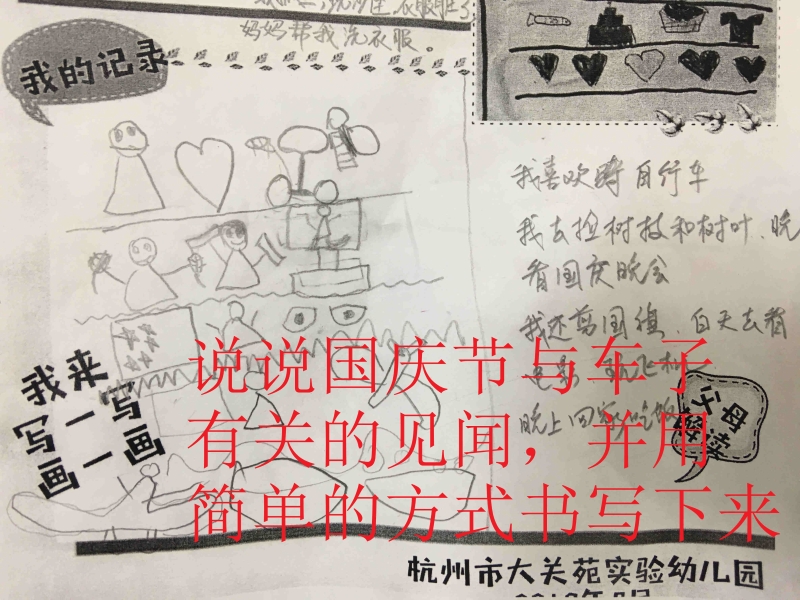 妈妈帮我洗衣服。
我的记录
我喜欢骑自行车
我去捡树枝和树叶.晚
看国庆晚会
我还剪国旗.白天去看
晚上回家吃饭
我来
写一写
画一画
说说国庆节与车子
有关的见闻，并用
简单的方式书写下来
杭州市大关苑实验幼儿园